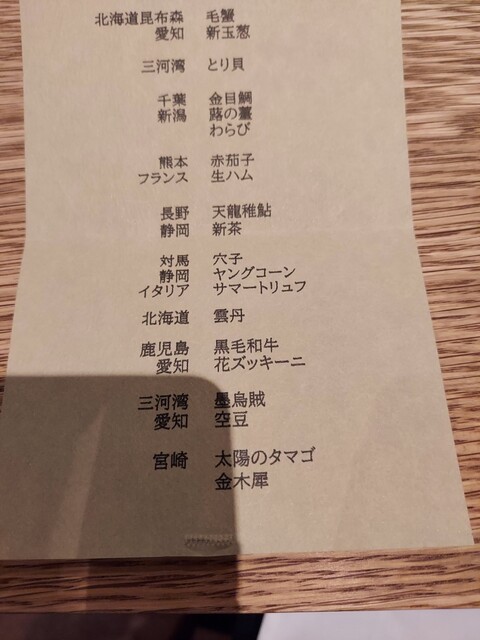 北海道昆布森 毛蟹
愛知 新玉葱
三河湾 とり貝
千葉 金目鯛
新潟 蕗の薹
わらび
熊本 赤茄子
フランス 生ハム
長野 天龍稚鮎
静岡 新茶
対馬 穴子
静岡 ヤングコーン
イタリア サマートリュフ
北海道 雲丹
鹿児島 黒毛和牛
愛知 花ズッキーニ
三河湾 墨烏賊
愛知 空豆
宮崎 太陽のタマゴ
金木犀